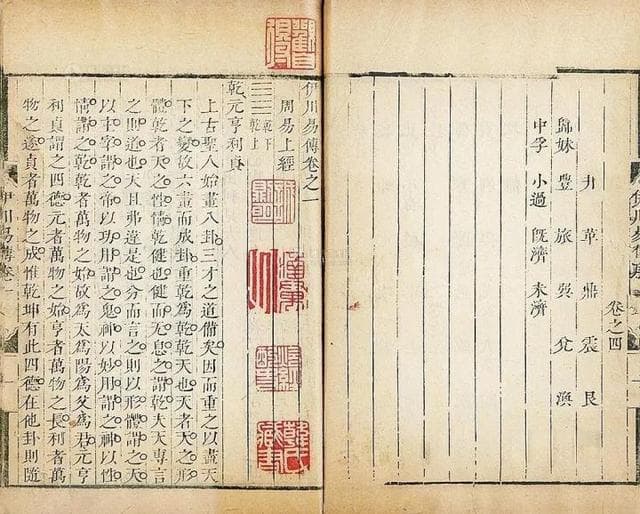 卷之四
井 革 鼎 震 艮
歸妹 豐 旅 巽 兌 渙
中孚 小過 旣濟 未濟
伊川易傳卷之一
周易上經
乾下
乾上
乾元亨利貞
上古聖人始畫八卦三才之道備矣因而重之以盡天
下之變故六畫而成卦重乾爲乾乾天也天者天之形
體乾者天之性情乾健也健而无息之謂乾夫天專言
之則道也天且弗違是也分而言之則以形體謂之天
以主宰謂之帝以功用謂之鬼神以妙用謂之神以性
情謂之乾乾者萬物之始故爲天爲陽爲父爲君元亨
利貞謂之四德元者萬物之始亨者萬物之長利者萬
物之遂貞者萬物之成惟乾坤有此四德在他卦則隨
伊川易傳卷一